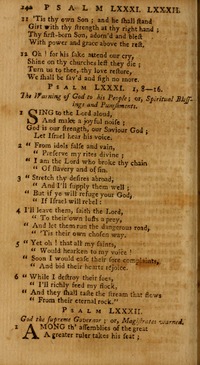 240 PSALM LXXXI. LXXXII.
11 'Tis thy own Son; and he shall stand
Girt with thy strength at thy right hand;
Thy first-born Son, adorn'd and blest
With power and grace above the rest.
12 Oh! for his sake attend our cry,
Shine on thy churches lest they die;
Turn us to thee, thy love restore,
We shall be sav'd and sigh no more.
PSALM LXXXI. 1, 8—16.
The Warning of God to his People; or, Spiritual Bless-
ings and Punishments.
1 SING to the Lord aloud,
And make a joyful noise;
God is our strength, our Saviour God;
Let Israel hear his voice.
2 " From idols false and vain,
" Preserve my rites divine;
" I am the Lord who broke thy chain
" Of slavery and of sin.
3 " Stretch thy desires abroad,
" And I'll supply them well;
" But if you will refuse your God,
" If Israel will rebel:
4 I'll leave them, saith the Lord,
" To their own lusts a prey,
" And let them run the dangerous road,
" 'Tis their own chosen way.
5 " Yet oh! that all my saints,
" Would hearken to my voice!
" Soon I would ease their sore complaints,
" And bid their hearts rejoice.
6 " While I destroy their foes,
" I'll richly feed my flock,
" And they shall taste the stream that flows
" From their eternal rock."
PSALM LXXXII.
God the supreme Governor; or, Magistrates warned.
1 AMONG th' assemblies of the great
A greater ruler takes his seat;